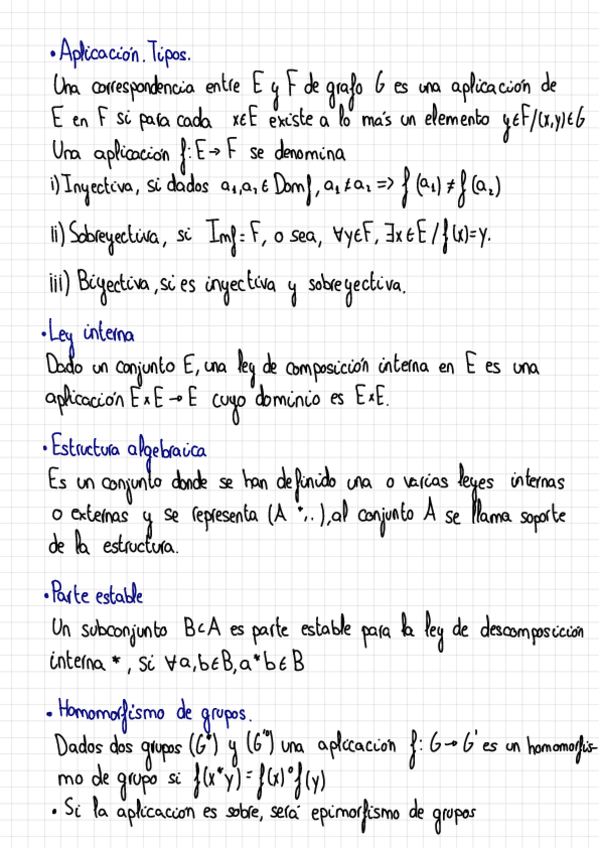 • Aplicación. Tipos.
Una correspondencia entre E y F de grafo G es una aplicación de
E en F si para cada x∈E existe a lo más un elemento y∈F/(x,y)∈G
Una aplicación f: E→F se denomina
i) Inyectiva, si dados a₁,a₂ ∈ Domf, a₁≠a₂ => f(a₁) ≠ f(a₂)
ii) Sobreyectiva, si Imf = F, o sea, ∀y∈F, ∃x∈E / f(x)=y.
iii) Biyectiva, si es inyectiva y sobreyectiva.
• Ley interna
Dado un conjunto E, una ley de composición interna en E es una
aplicación E×E → E cuyo dominio es E×E.
• Estructura algebraica
Es un conjunto donde se han definido una o varias leyes internas
o externas y se representa (A *,.), al conjunto A se llama soporte
de la estructura.
• Parte estable
Un subconjunto B⊂A es parte estable para la ley de descomposición
interna *, si ∀a,b∈B, a*b∈B
• Homomorfismo de grupos.
Dados dos grupos (G*) y (G'°) una aplicación f: G→G' es un homomorfis-
mo de grupo si f(x*y) = f(x)°f(y)
• Si la aplicacion es sobre, será epimorfismo de grupos